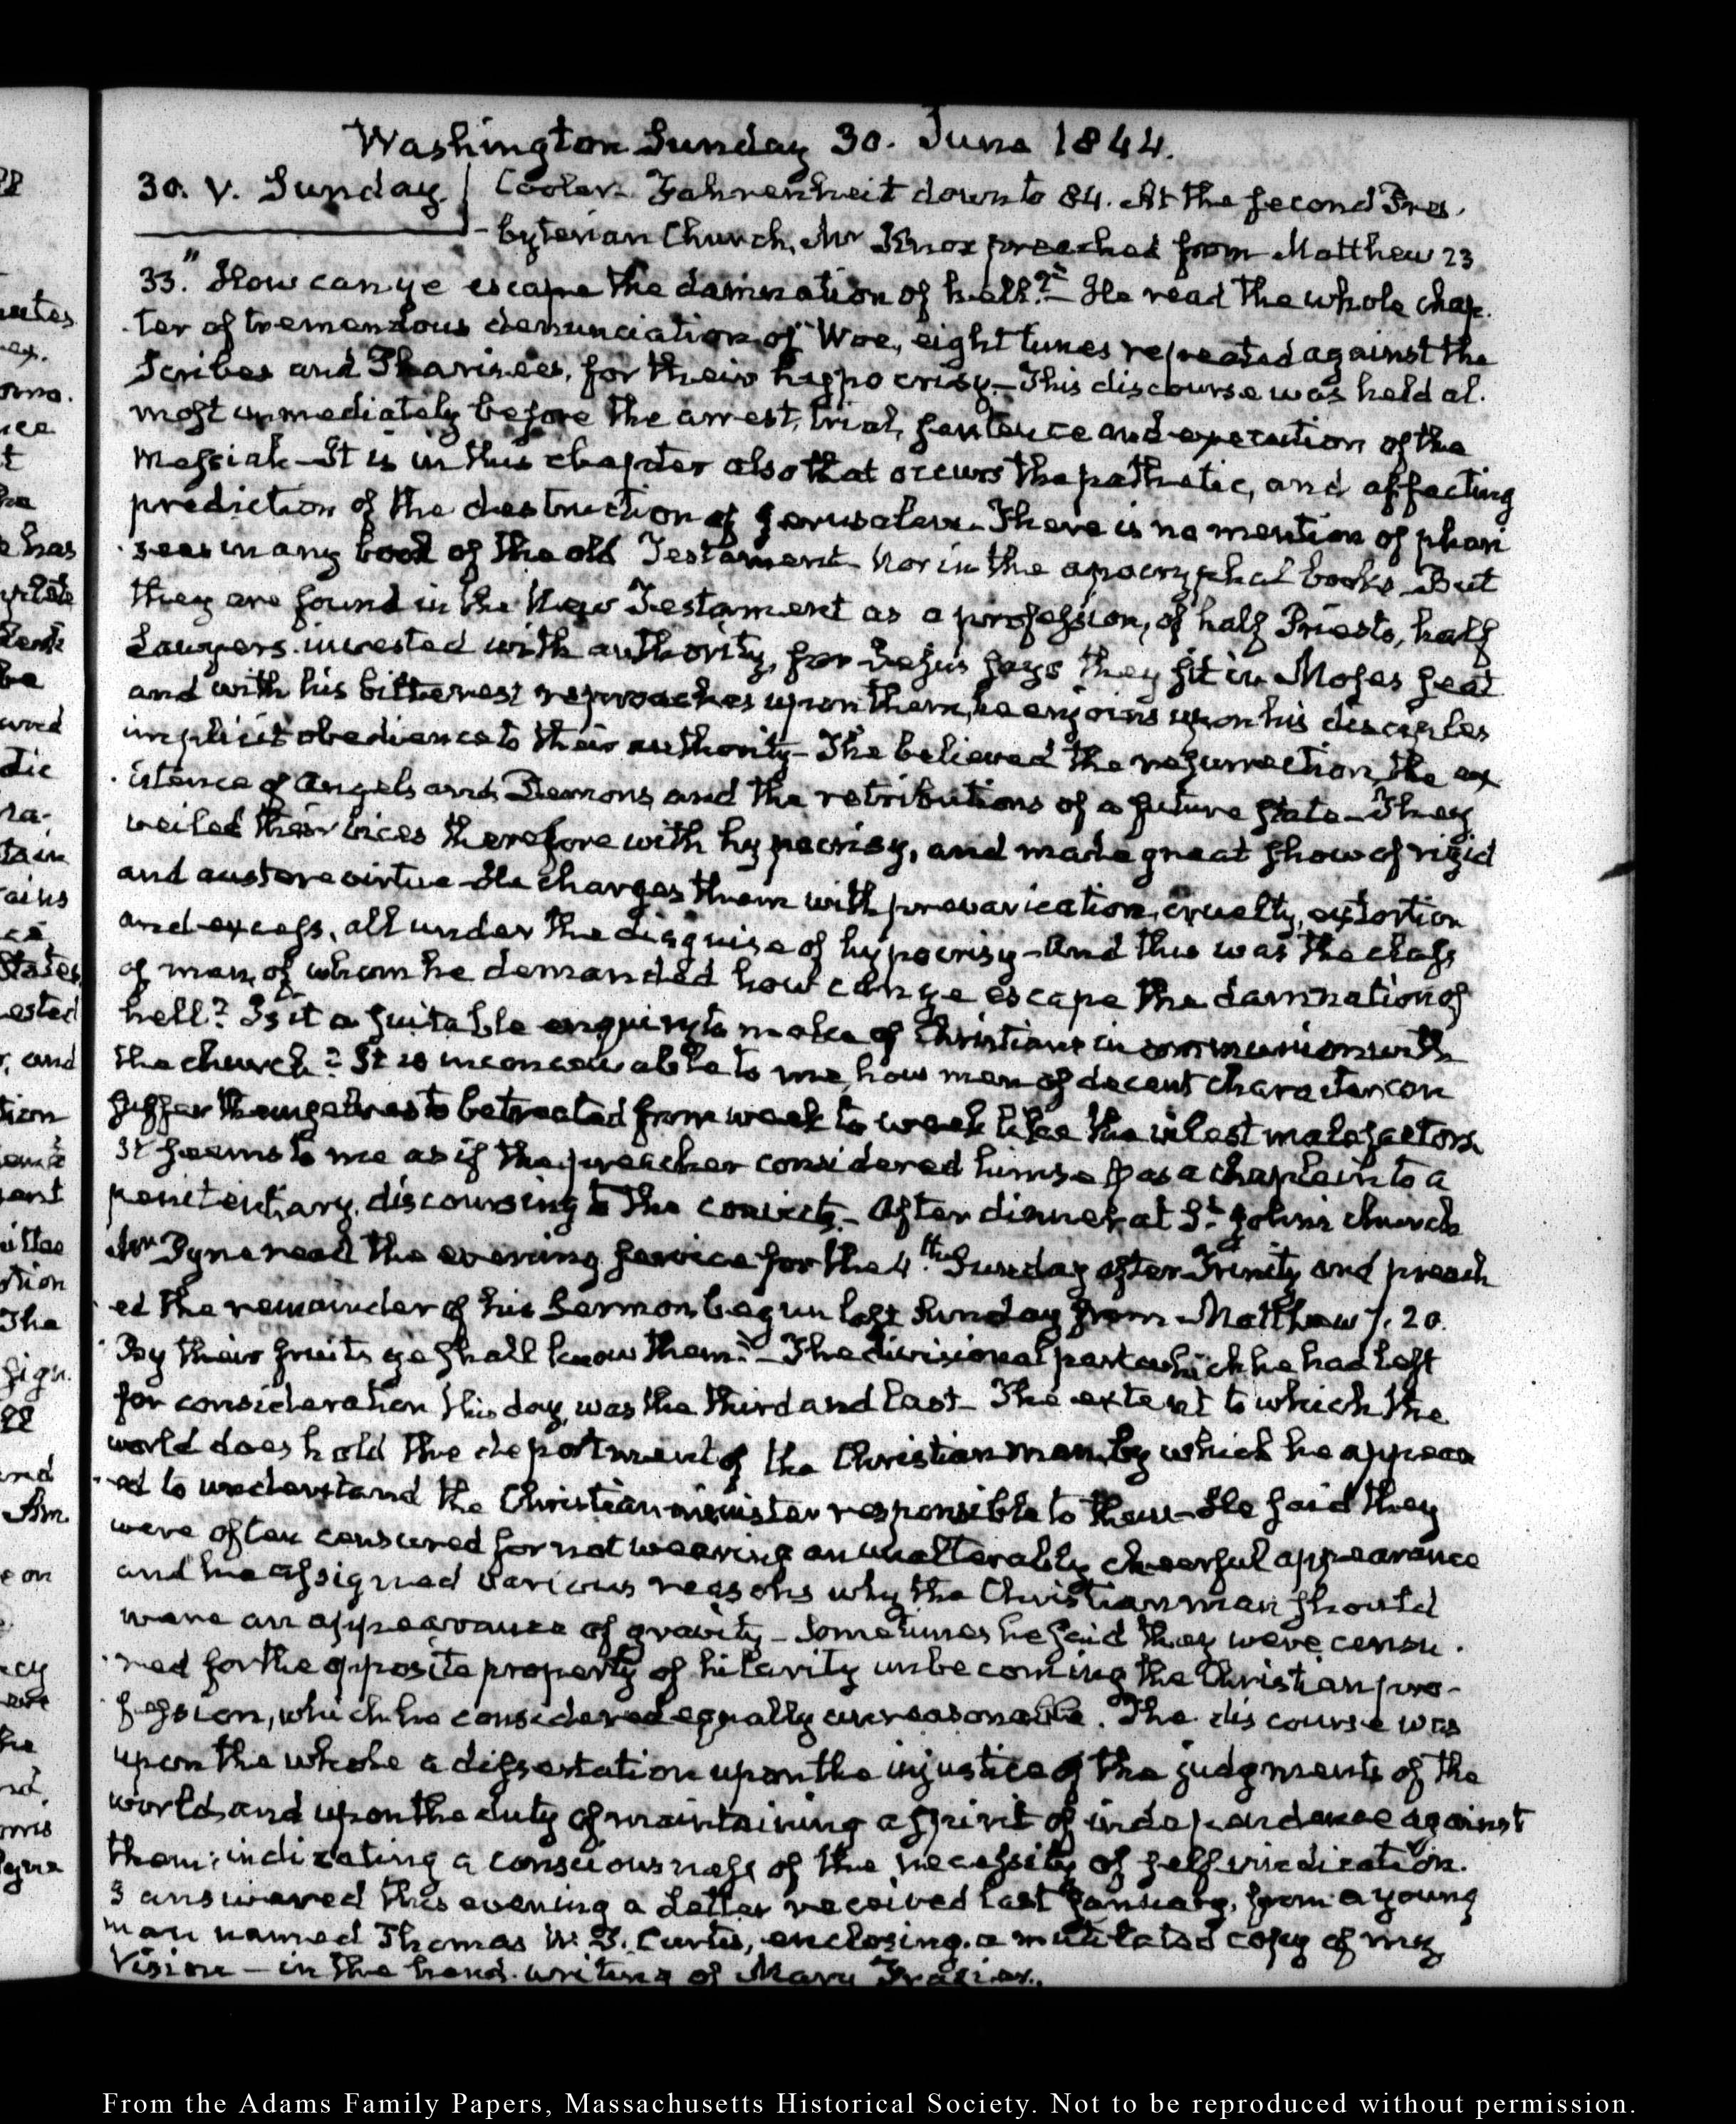 Washington Sunday 30. June 1844.
30. V. Sunday. Cooler. Fahrenheit down to 84. At the second Pres.
byterian Church, Mr Knox preached from Matthew 23
33. "How can ye escape the damnation of hell?" He read the whole chap.
ter of tremendous denunciation of Woe, eight times repeated against the
Scribes and Pharisees, for their hypocrisy — This discourse was held al.
most immediately before the arrest, trial, sentence and execution of the
Messiah — It is in this chapter also that occurs the pathetic, and affecting
prediction of the destruction of Jerusalem — There is no mention of phari
sees in any book of the old Testament — Nor in the apocryphal books — But
they are found in the New Testament as a profession, of half Priests, half
Lawyers invested with authority, for Jesus says they sit in Moses seat
and with his bitterest reproaches upon them, he enjoins upon his disciples
implicit obedience to their authority — The believed the resurrection, the ex
istence of Angels and Demons, and the retributions of a future state — They
veiled their vices therefore with hypocrisy, and made great show of rigid
and austere virtue — He charges them with prevarication, cruelty, extortion
and excess, all under the disguise of hypocrisy — And this was the class
of men, of whom he demanded how can ye escape the damnation of
hell? Is it a suitable enquiry to make of Christians in communion with
the church? It is inconceivable to me, how men of decent character can
suffer themselves to be treated from week to week like the vilest malefactors
It seems to me as if the preacher considered himself as a chaplain to a
penitentiary, discoursing to the convicts — After dinner, at St. John's church
Mr Pyne read the evening service for the 4th Sunday after Trinity and preach
ed the remainder of his Sermon begun last Sunday from Matthew 7. 20.
By their fruits ye shall know them." — The divisional part which he had left
for consideration this day, was the third and last — The extent to which the
world does hold the deportment of the Christian man, by which he appear
ed to understand the Christian minister responsible to them — He said they
were often censured for not wearing an unalterably cheerful appearance
and he assigned various reasons why the Christian man should
wear an appearance of gravity — Sometimes he said they were censu.
red for the opposite property of hilarity unbecoming the Christian pro-
fession, which he considered equally unreasonable. The discourse was
upon the whole a dissertation upon the injustice of the judgments of the
world, and upon the duty of maintaining a spirit of independence against
them; indicating a consciousness of the necessity of self vindication.
I answered this evening a Letter received last January, from a young
man named Thomas W. T. Curtis, enclosing a mutilated copy of my
Vision — in the hand-writing of Mary Frazier.
From the Adams Family Papers, Massachusetts Historical Society. Not to be reproduced without permission.